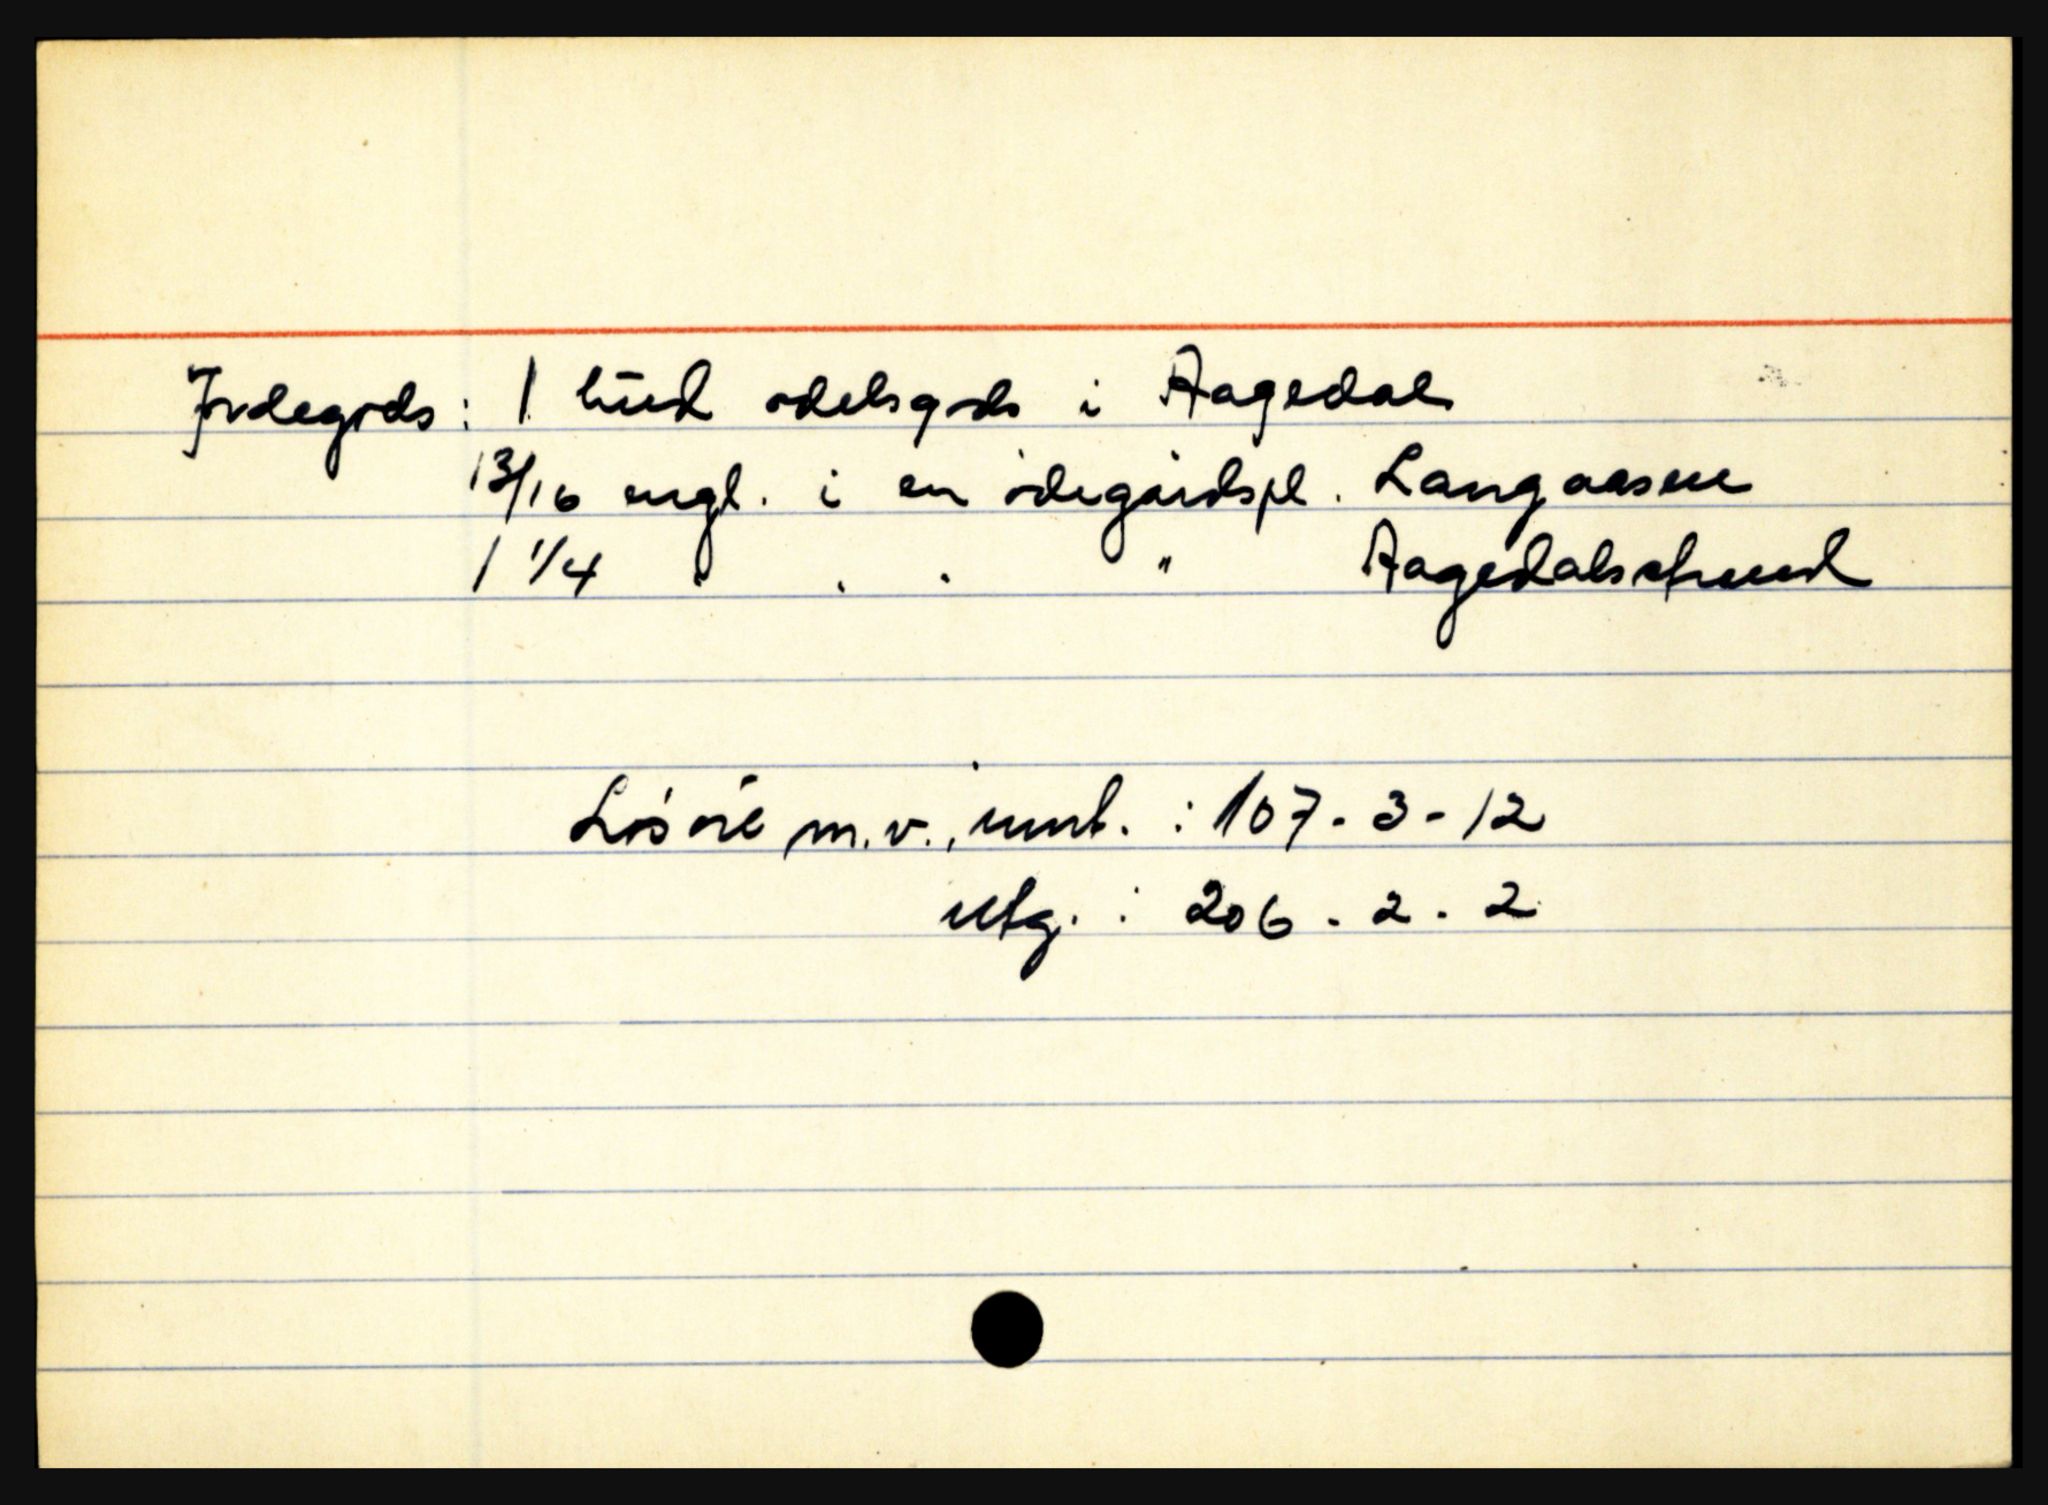 Jordegods: 1 hud odelsgods i Aagedal
13/16 engl. i en ödegårdspl. Langaasene
1 1/4 " . . " Aagedalsstrund
Lösöre m.v., innt. : 107 - 3 - 12
Utg. : 206 - 2 - 2